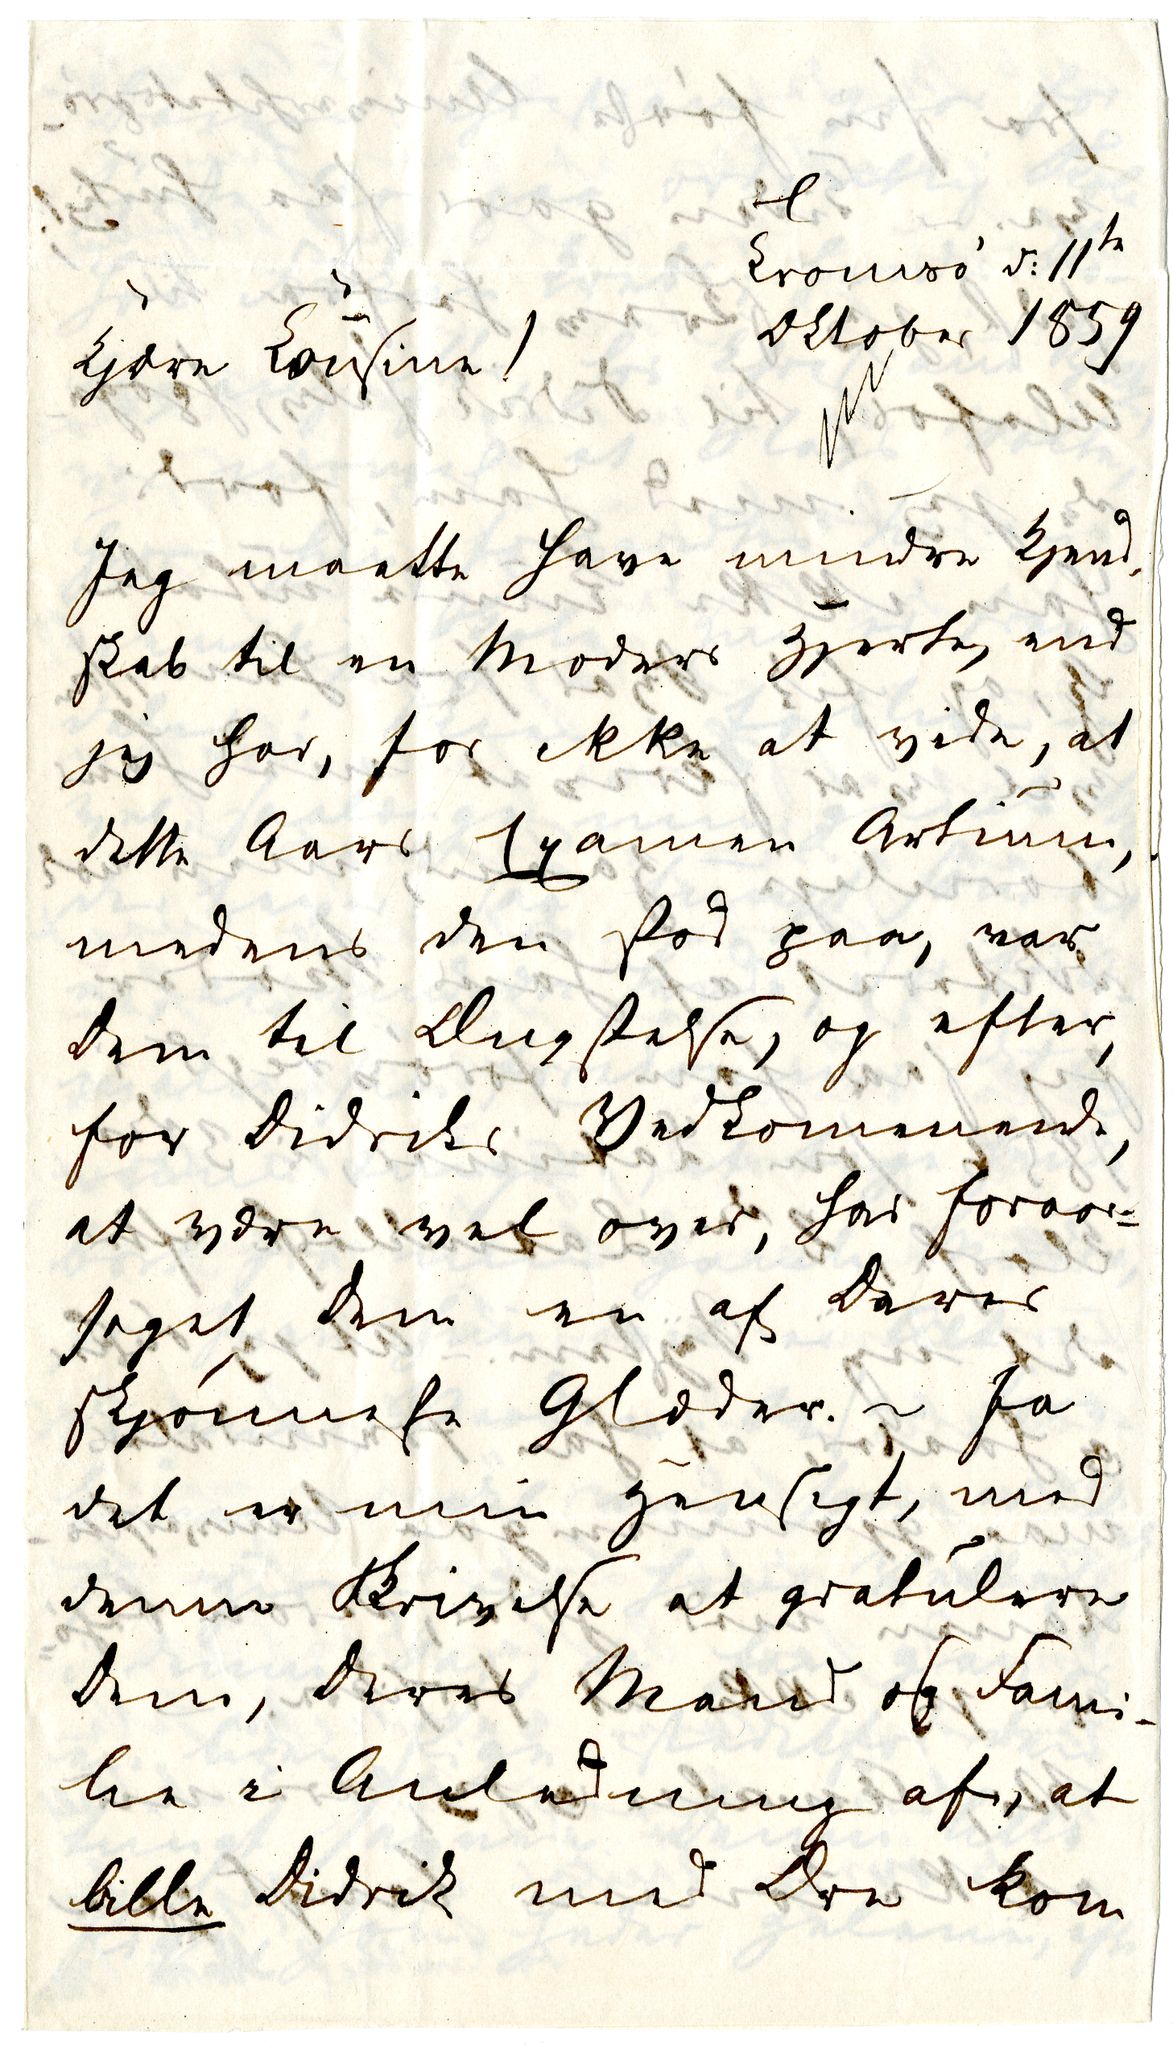 Tromsø d: 11te
Oktober 1859
Kjære Coûsine!
Jeg maatte have mindre Kjend-
skab til en Moders Hjerte, end
jeg har, for ikke at vide, at
dette Aars Examen Artium,
medens den stod paa, var
Dem til Ængstelse, og efter,
for Didriks Vedkommende,
at være vel over, har foraar-
saget Dem en af Deres
skjønneste Glæder. ~ Ja
det er min Hensigt, med
denne Skrivelse at gratulere
Dem, Deres Mand og Fami-
lie i Anledning af, at
lille Didrik med Ære kom